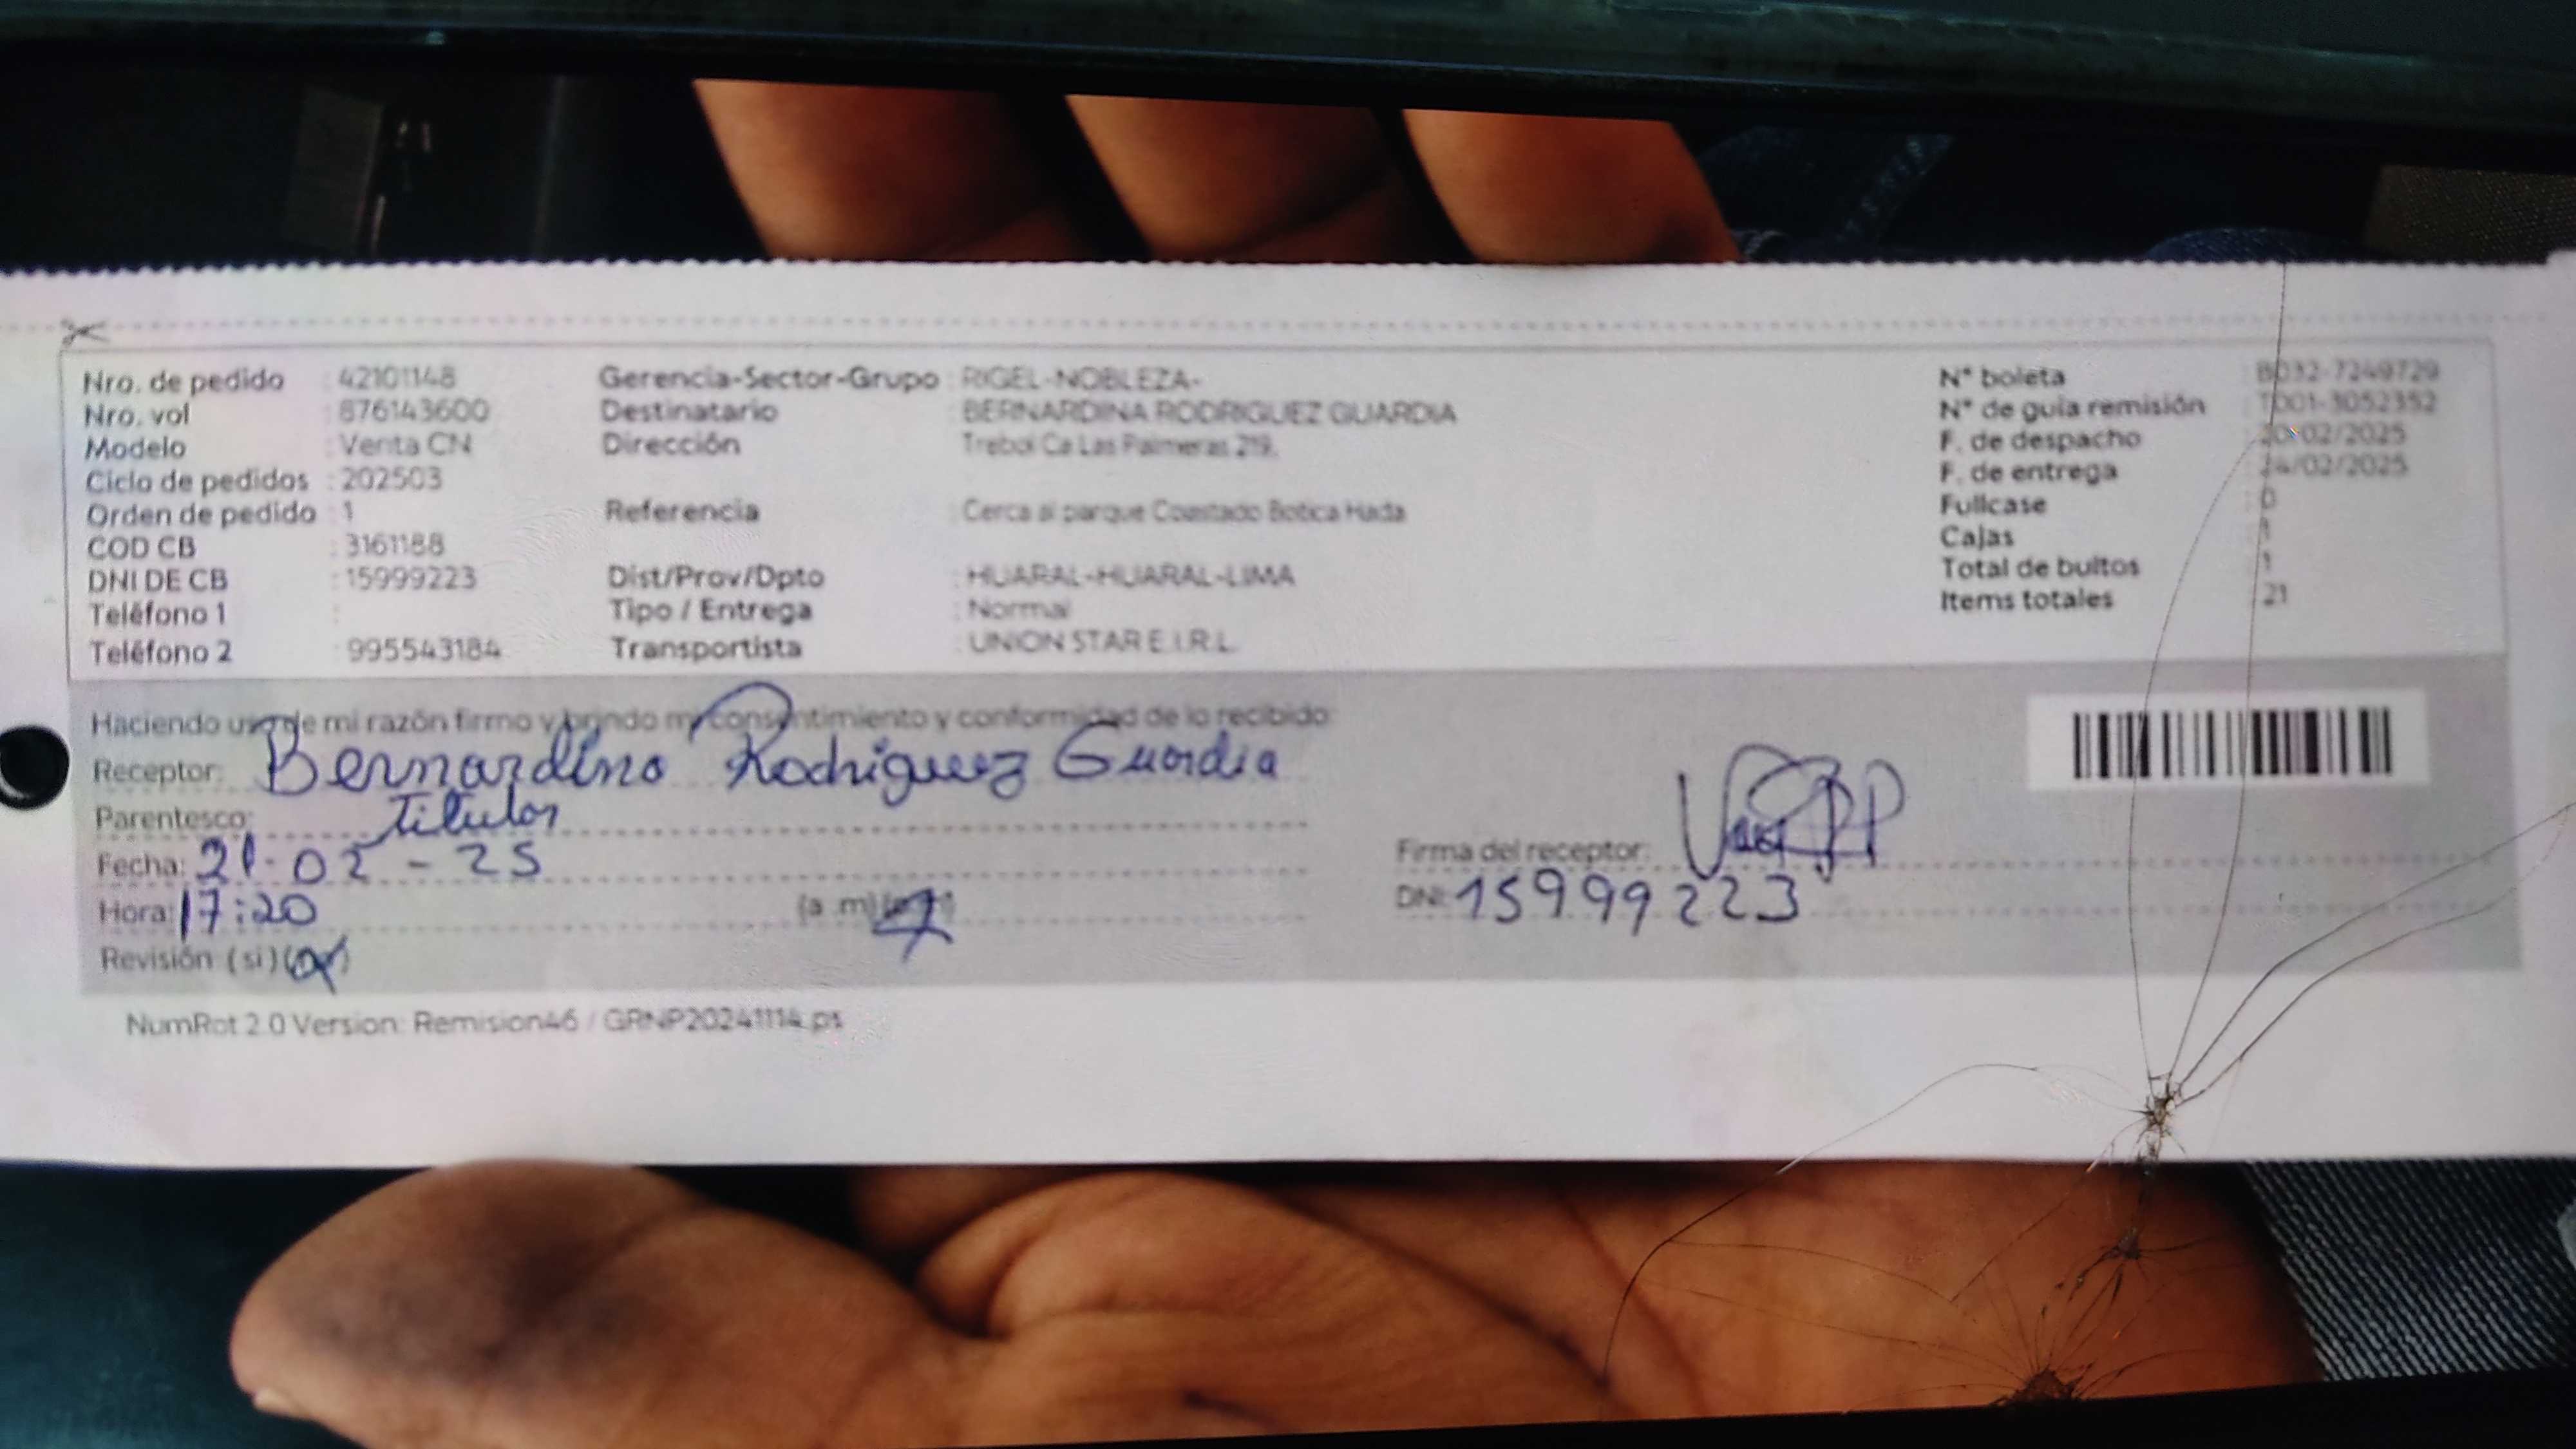 Nro. de pedido : 42101148
Nro. vol : 876143600
Modelo : Venta CN
Ciclo de pedidos : 202503
Orden de pedido : 1
COD CB : 3161188
DNI DE CB : 15999223
Teléfono 1 :
Teléfono 2 : 995543184
Gerencia-Sector-Grupo : RIGEL-NOBLEZA-
Destinatario : BERNARDINA RODRIGUEZ GUARDIA
Dirección : Trebol Ca Las Palmeras 219,
Referencia : Cerca al parque Coastado Botica Hada
Dist/Prov/Dpto : HUARAL-HUARAL-LIMA
Tipo / Entrega : Normal
Transportista : UNION STAR E.I.R.L.
N° boleta : B032-7249729
N° de guia remisión : T001-3052352
F. de despacho : 20/02/2025
F. de entrega : 24/02/2025
Fullcase : 0
Cajas : 1
Total de bultos : 1
Items totales : 21
Haciendo uso de mi razón firmo y brindo mi consentimiento y conformidad de lo recibido:
Receptor: Bernardina Rodriguez Guardia
Parentesco: Titular
Fecha: 21-02-25
Hora: 17:20 (a .m)
Revisión: (si)
Firma del receptor:
DNI: 15999223
NumRot 2.0 Version: Remision46 / GRNP20241114.ps